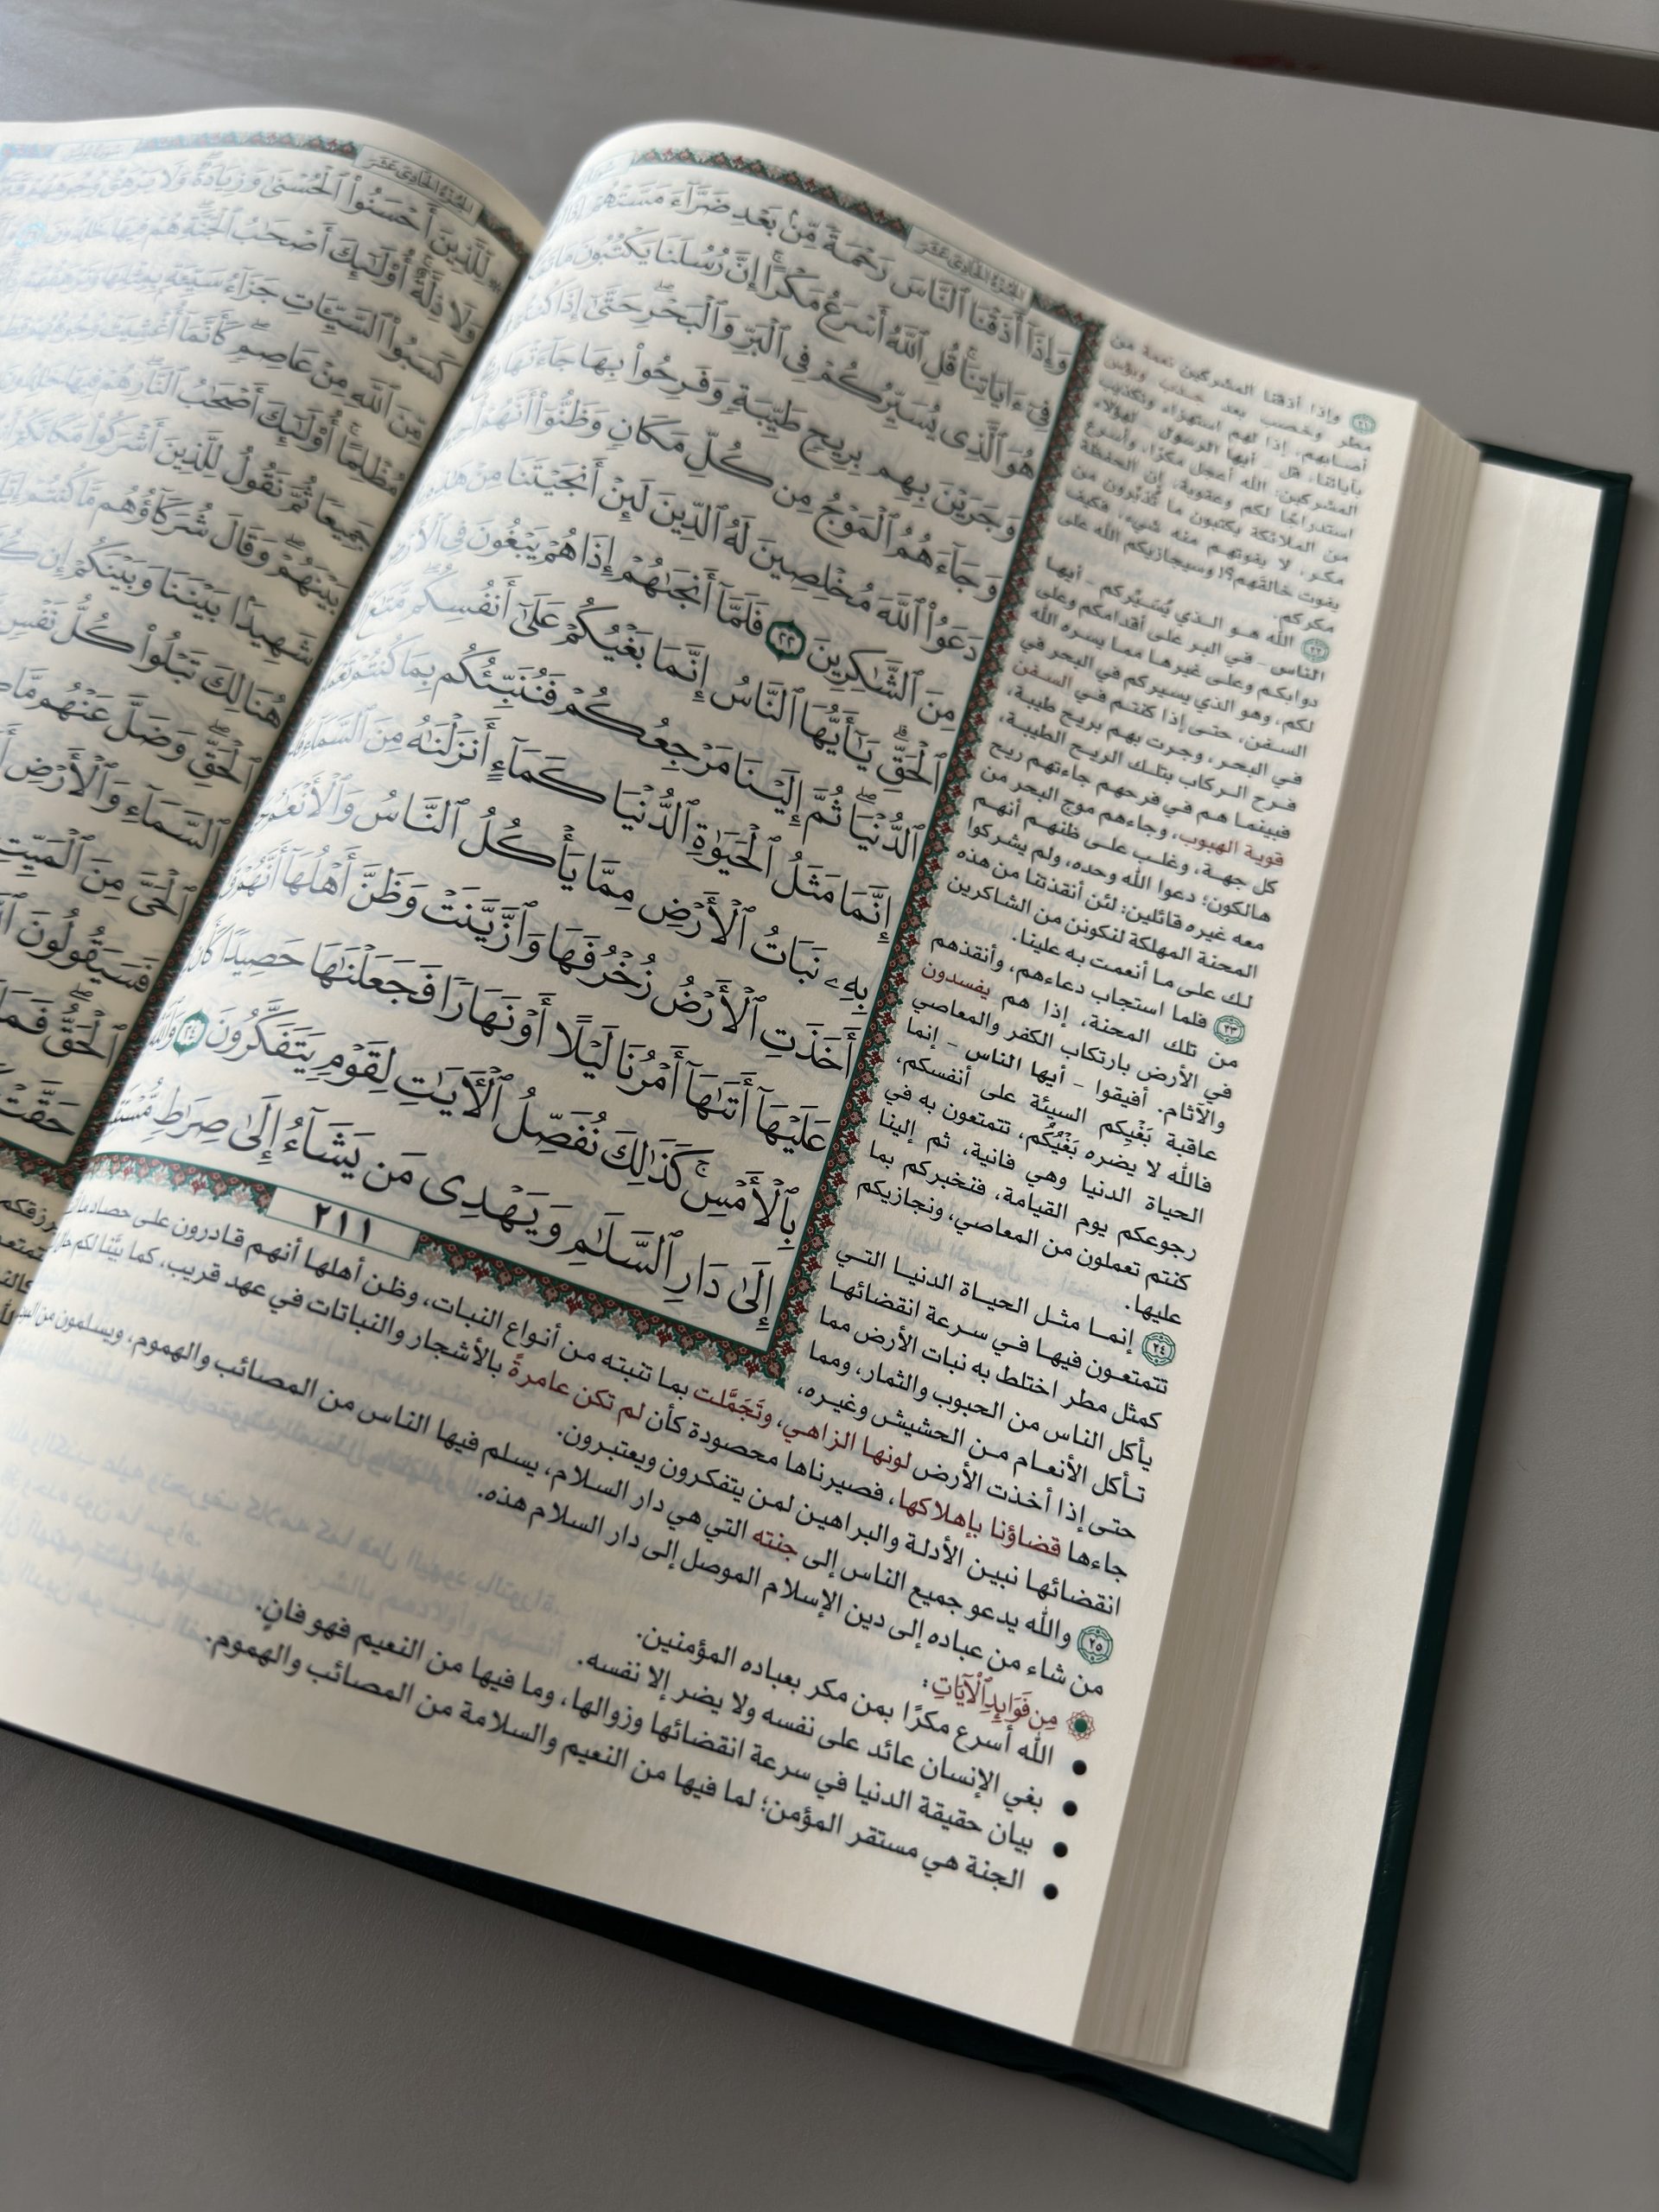 الجزء الحادي عشر
وَإِذَآ أَذَقْنَا ٱلنَّاسَ رَحْمَةً مِّنۢ بَعْدِ ضَرَّآءَ مَسَّتْهُمْ إِذَا
فِىٓ ءَايَاتِنَا ۚ قُلِ ٱللَّهُ أَسْرَعُ مَكْرًا ۚ إِنَّ رُسُلَنَا يَكْتُبُونَ مَا
هُوَ ٱلَّذِى يُسَيِّرُكُمْ فِى ٱلْبَرِّ وَٱلْبَحْرِ ۖ حَتَّىٰٓ إِذَا كُنتُمْ
وَجَرَيْنَ بِهِم بِرِيحٍ طَيِّبَةٍ وَفَرِحُوا۟ بِهَا جَآءَتْهَا
وَجَآءَهُمُ ٱلْمَوْجُ مِن كُلِّ مَكَانٍ وَظَنُّوٓا۟ أَنَّهُمْ
دَعَوُا۟ ٱللَّهَ مُخْلِصِينَ لَهُ ٱلدِّينَ لَئِنْ أَنجَيْتَنَا مِنْ هَٰذِهِۦ
مِنَ ٱلشَّٰكِرِينَ ٢٢ فَلَمَّآ أَنجَىٰهُمْ إِذَا هُمْ يَبْغُونَ فِى ٱلْأَرْضِ
ٱلْحَقِّ ۗ يَٰٓأَيُّهَا ٱلنَّاسُ إِنَّمَا بَغْيُكُمْ عَلَىٰٓ أَنفُسِكُم ۖ مَّتَٰعَ
ٱلدُّنْيَا ۖ ثُمَّ إِلَيْنَا مَرْجِعُكُمْ فَنُنَبِّئُكُم بِمَا كُنتُمْ
إِنَّمَا مَثَلُ ٱلْحَيَوٰةِ ٱلدُّنْيَا كَمَآءٍ أَنزَلْنَٰهُ مِنَ ٱلسَّمَآءِ
بِهِۦ نَبَاتُ ٱلْأَرْضِ مِمَّا يَأْكُلُ ٱلنَّاسُ وَٱلْأَنْعَٰمُ
أَخَذَتِ ٱلْأَرْضُ زُخْرُفَهَا وَٱزَّيَّنَتْ وَظَنَّ أَهْلُهَآ أَنَّهُمْ
عَلَيْهَآ أَتَىٰهَآ أَمْرُنَا لَيْلًا أَوْ نَهَارًا فَجَعَلْنَٰهَا حَصِيدًا كَأَن
بِٱلْأَمْسِ ۚ كَذَٰلِكَ نُفَصِّلُ ٱلْءَايَٰتِ لِقَوْمٍ يَتَفَكَّرُونَ ٢٤ وَٱللَّهُ
إِلَىٰ دَارِ ٱلسَّلَٰمِ وَيَهْدِى مَن يَشَآءُ إِلَىٰ صِرَٰطٍ
٢١١
٢١ وإذا أذقنا المشركين نعمة من
مطر وخصب بعد جدب وبؤس
أصابهم، إذا لهم استهزاء وتكذيب
بآياتنا، قل - أيها الرسول - لهؤلاء
المشركين: الله أعجل مكرًا، وأسرع
استدراجًا لكم وعقوبة، إن الحفظة
من الملائكة يكتبون ما تُدبِّرون من
مكر، لا يفوتهم منه شيء، فكيف
يفوت خالقَهم؟! وسيجازيكم الله على
مكركم.
٢٢ الله هو الذي يُسَيِّركم - أيها
الناس - في البر على أقدامكم وعلى
دوابكم وعلى غيرها مما يسره الله
لكم، وهو الذي يسيركم في البحر في
السفن، حتى إذا كنتم في السفن
في البحر، وجرت بهم بريح طيبة،
فرح الركاب بتلك الريح الطيبة،
فبينما هم في فرحهم جاءتهم ريح
قوية الهبوب، وجاءهم موج البحر من
كل جهة، وغلب على ظنهم أنهم
هالكون؛ دعوا الله وحده، ولم يشركوا
معه غيره قائلين: لئن أنقذتنا من هذه
المحنة المهلكة لنكونن من الشاكرين
لك على ما أنعمت به علينا.
٢٣ فلما استجاب دعاءهم، وأنقذهم
من تلك المحنة، إذا هم يفسدون
في الأرض بارتكاب الكفر والمعاصي
والآثام. أفيقوا - أيها الناس - إنما
عاقبة بَغْيِكم السيئة على أنفسكم،
فالله لا يضره بَغْيُكُم، تتمتعون به في
الحياة الدنيا وهي فانية، ثم إلينا
رجوعكم يوم القيامة، فنخبركم بما
كنتم تعملون من المعاصي، ونجازيكم
عليها.
٢٤ إنما مثل الحياة الدنيا التي
تتمتعون فيها في سرعة انقضائها
كمثل مطر اختلط به نبات الأرض مما
يأكل الناس من الحبوب والثمار، ومما
تأكل الأنعام من الحشيش وغيره،
حتى إذا أخذت الأرض لونها الزاهي، وتَجَمَّلت بما تنبته من أنواع النبات، وظن أهلها أنهم قادرون على حصاد
جاءها قضاؤنا بإهلاكها، فصيرناها محصودة كأن لم تكن عامرةً بالأشجار والنباتات في عهد قريب، كما بيَّنا لكم
انقضائها نبين الأدلة والبراهين لمن يتفكرون ويعتبرون.
٢٥ والله يدعو جميع الناس إلى جنته التي هي دار السلام، يسلم فيها الناس من المصائب والهموم، ويسلمون من
من شاء من عباده إلى دين الإسلام الموصل إلى دار السلام هذه.
مِن فَوَائِدِ ٱلْآيَاتِ:
• الله أسرع مكرًا بمن مكر بعباده المؤمنين.
• بغي الإنسان عائد على نفسه ولا يضر إلا نفسه.
• بيان حقيقة الدنيا في سرعة انقضائها وزوالها، وما فيها من النعيم فهو فانٍ.
• الجنة هي مستقر المؤمن؛ لما فيها من النعيم والسلامة من المصائب والهموم.
الجزء الحادي عشر
۞ لِّلَّذِينَ أَحْسَنُوا۟ ٱلْحُسْنَىٰ وَزِيَادَةٌ ۖ وَلَا يَرْهَقُ وُجُوهَهُمْ
وَلَا ذِلَّةٌ ۚ أُو۟لَٰٓئِكَ أَصْحَٰبُ ٱلْجَنَّةِ ۖ هُمْ فِيهَا خَٰلِدُونَ
كَسَبُوا۟ ٱلسَّيِّـَٔاتِ جَزَآءُ سَيِّئَةٍۭ بِمِثْلِهَا وَتَرْهَقُهُمْ
مِّنَ ٱللَّهِ مِنْ عَاصِمٍ ۖ كَأَنَّمَآ أُغْشِيَتْ وُجُوهُهُمْ
مُظْلِمًا ۚ أُو۟لَٰٓئِكَ أَصْحَٰبُ ٱلنَّارِ ۖ هُمْ فِيهَا خَٰلِدُونَ
جَمِيعًا ثُمَّ نَقُولُ لِلَّذِينَ أَشْرَكُوا۟ مَكَانَكُمْ
بَيْنَهُمْ ۖ وَقَالَ شُرَكَآؤُهُم مَّا كُنتُمْ إِيَّانَا
شَهِيدًۢا بَيْنَنَا وَبَيْنَكُمْ إِن
هُنَالِكَ تَبْلُوا۟ كُلُّ نَفْسٍ
ٱلْحَقِّ ۖ وَضَلَّ عَنْهُم مَّا
ٱلسَّمَآءِ وَٱلْأَرْضِ
ٱلْحَىَّ مِنَ ٱلْمَيِّتِ
فَسَيَقُولُونَ
ٱلْحَقُّ ۖ فَمَا
حَقَّتْ